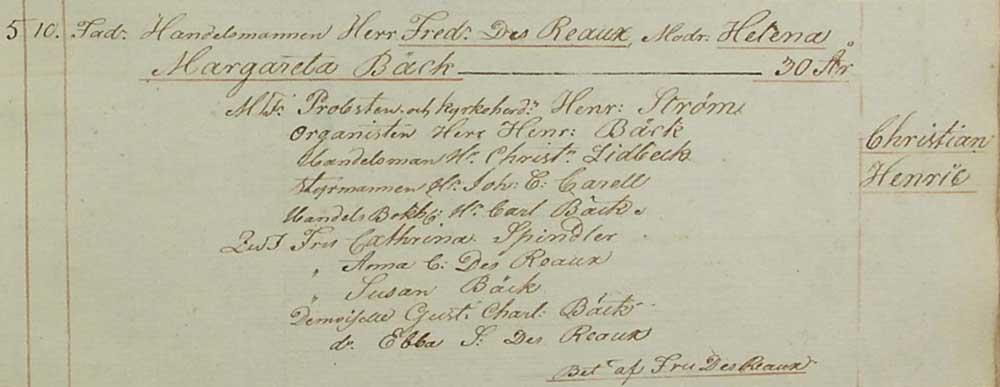 5 10. Fadr: Handelsmannen Herr Fredr: Des Reaux, Modr: Helena
Margareta Bäck 30 År
M.F: Probsten och Kyrkoherdn Henr: Ström
Organisten Herr Henr: Bäck
Handelsman Hr Christn Lidbeck
Styrmannen Hr Joh: C: Carell
Handels Bokh: Hr Carl Bäck.
Christian
Henric
Fru Cathrina Spindler
" Anna C: Des Reaux
" Susan Bäck
Demoiselle Gust: Charl: Bäck
do Ebba S: Des Reaux
Bet: af Fru Des Reaux